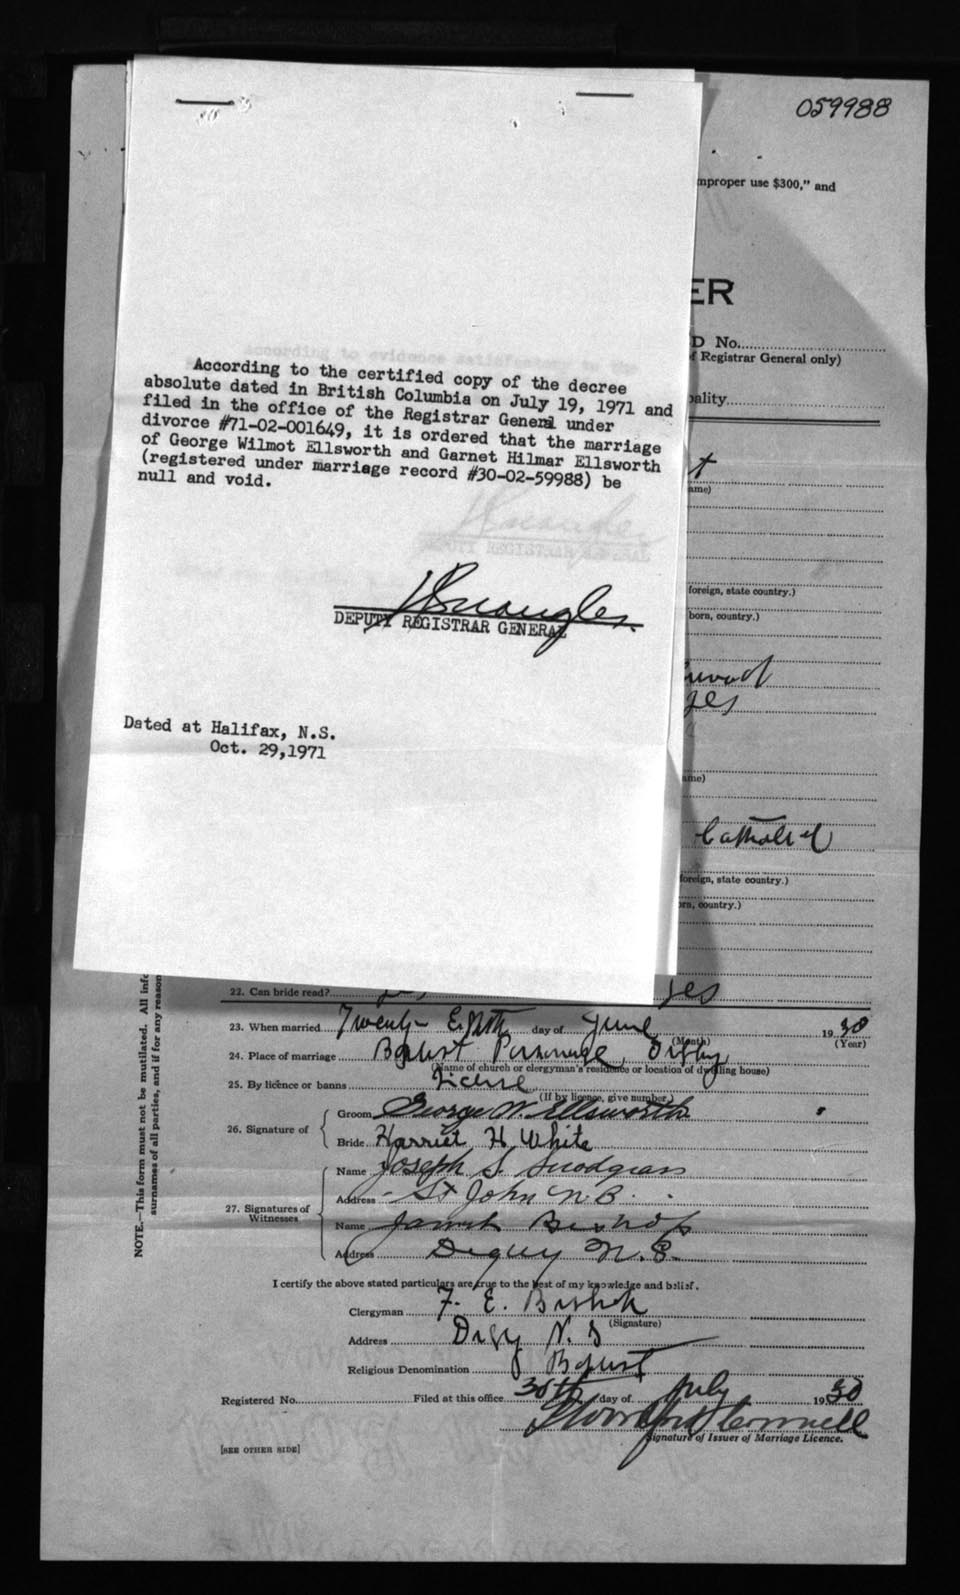 059988
mproper use $300," and
ER
D No.
f Registrar General only)
ality
ame)
foreign, state country.)
born, country.)
ame)
Catholic
foreign, state country.)
rn, country.)
According to the certified copy of the decree
absolute dated in British Columbia on July 19, 1971 and
filed in the office of the Registrar General under
divorce #71-02-001649, it is ordered that the marriage
of George Wilmot Ellsworth and Garnet Hilmar Ellsworth
(registered under marriage record #30-02-59988) be
null and void.
DEPUTY REGISTRAR GENERAL
Dated at Halifax, N.S.
Oct. 29,1971
NOTE.—This form must not be mutilated. All info
surnames of all parties, and if for any reason
22. Can bride read? yes
23. When married Twenty Eighth day of June 1930
(Month) (Year)
24. Place of marriage Baptist Parsonage, Digby
(Name of church or clergyman's residence or location of dwelling house)
25. By licence or banns License
(If by licence, give number.)
26. Signature of
Groom George W. Ellsworth
Bride Harriet H White
27. Signatures of Witnesses
Name Joseph S. Snodgrass
Address - St John N.B.
Name Bishop
Address Digby N.S.
I certify the above stated particulars are true to the best of my knowledge and belief.
Clergyman F. E. Bishop
(Signature)
Address Digby N. S
Religious Denomination Baptist
Registered No. Filed at this office 30th day of July 1930
Signature of Issuer of Marriage Licence.
[SEE OTHER SIDE]